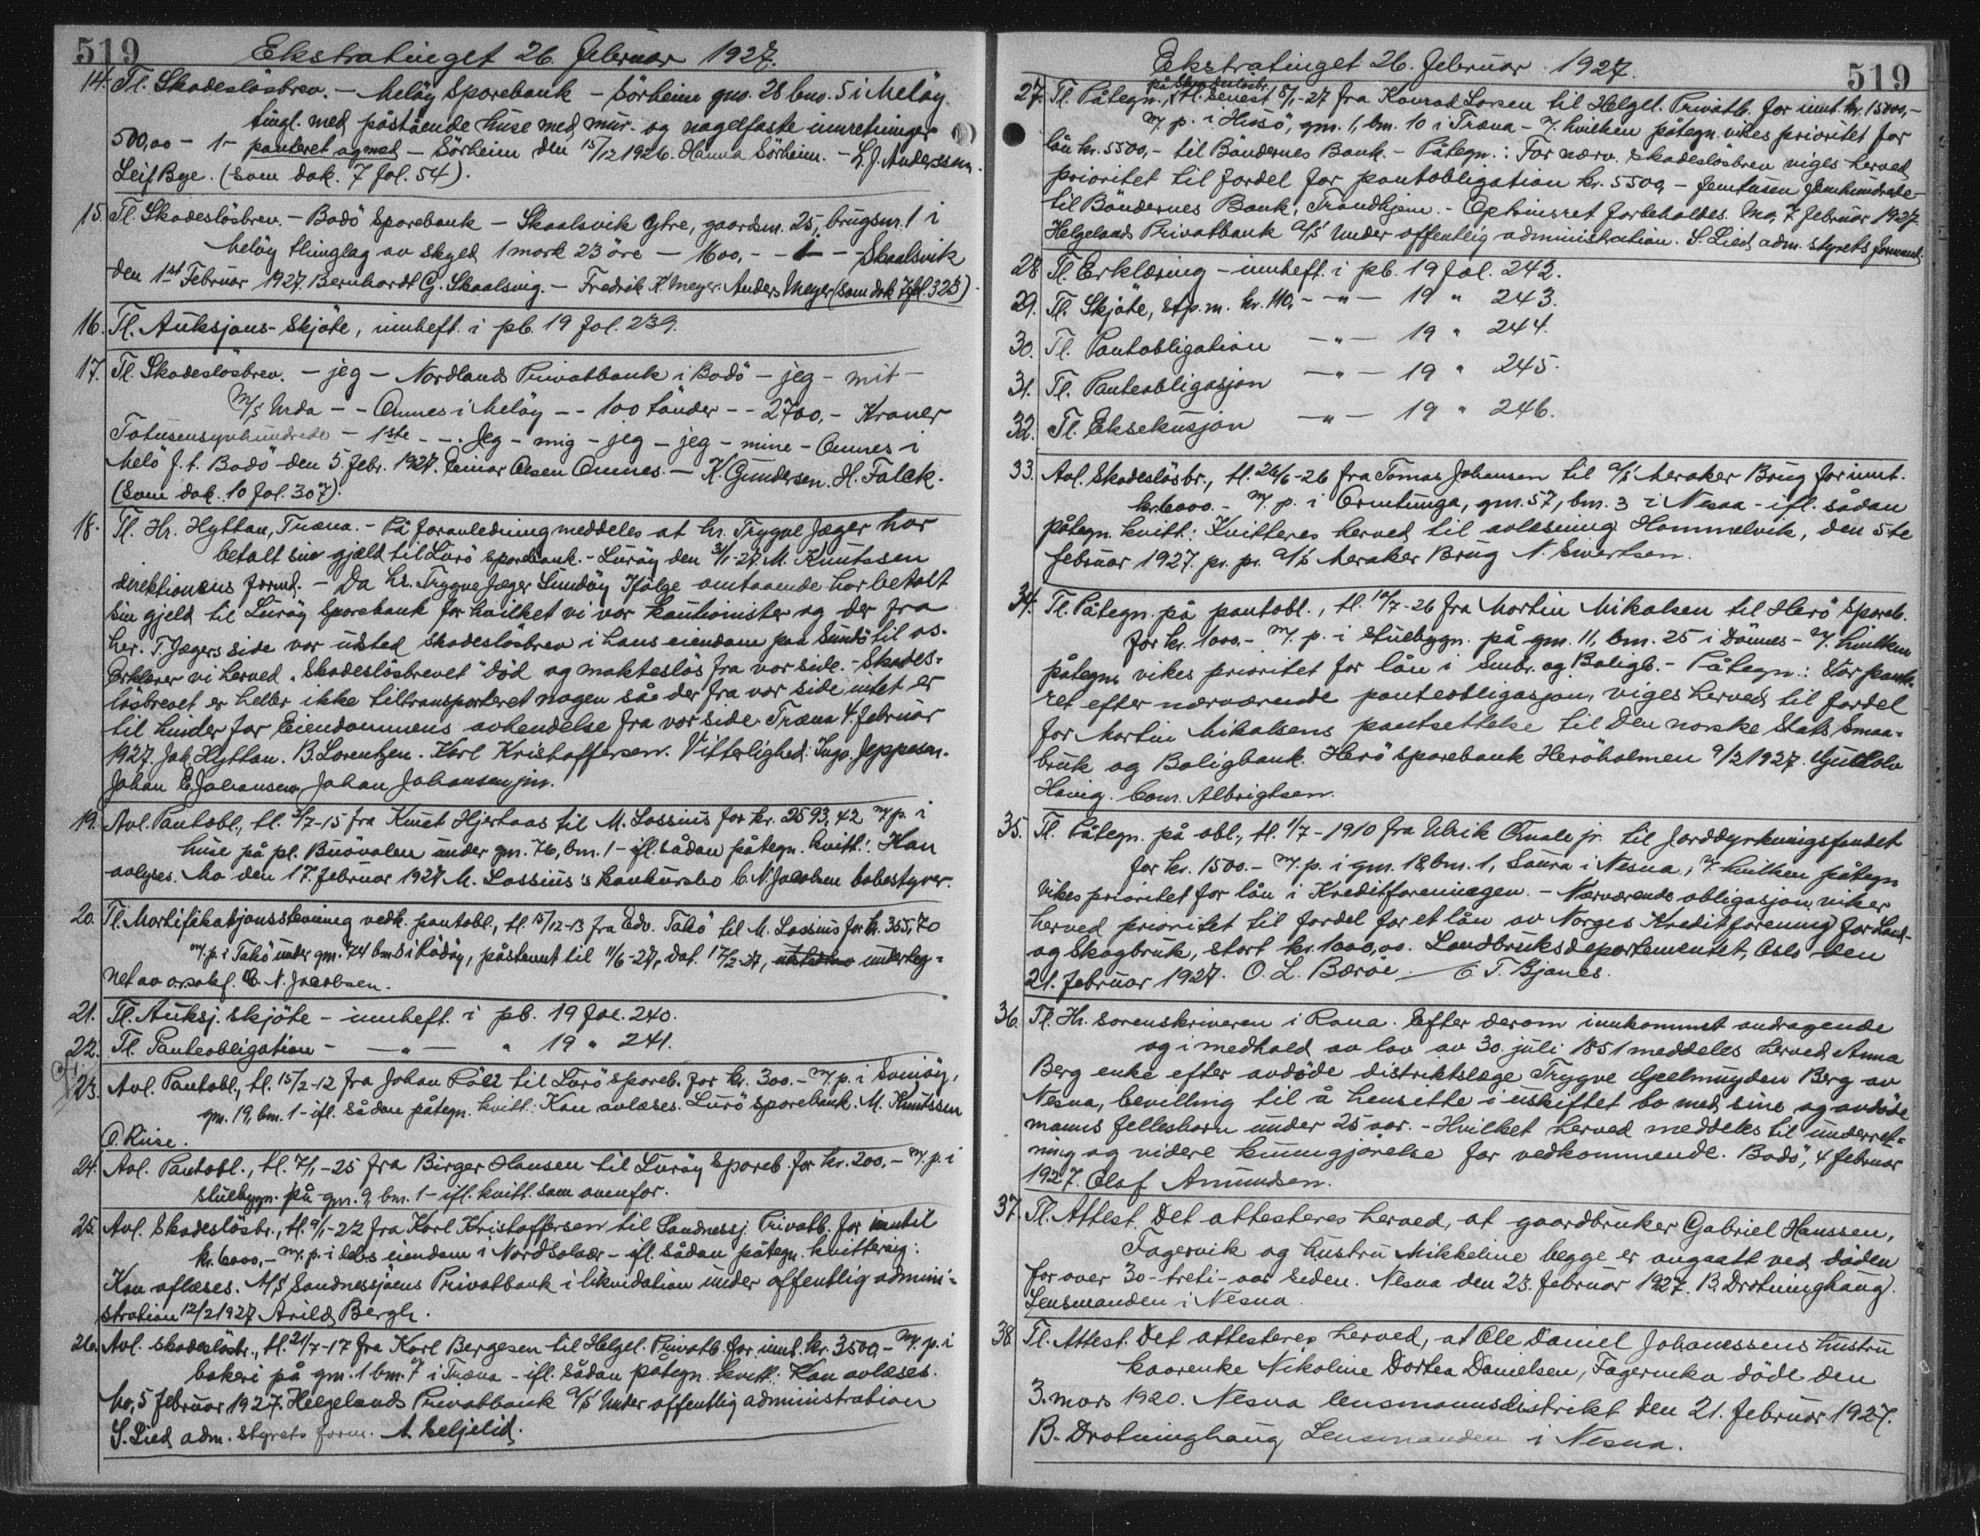 519
Ekstratinget 26. februar 1927.
14. Tl. Skadeslösbrev. – Melöy Sparebank – Sörheim gno. 28 bno. 5 i Melöy.
tingl. med påstående huse med mur- og nagelfaste innretninger
500,00 – 1- panteret og med – Sörheim den 15/12 1926. Hanna Sörheim. – L. J. Anderssen.
Leif Bye. (Som dok. 7 fol. 54).
15. Tl. Skadeslösbrev. – Bodö Sparebank – Skaalsvik Ytre, gaardsnr. 25, brugsnr. 1 i
Melöy thinglag av skyld 1 mark 23 öre – 1600,- – 1 – – Skaalsvik
den 1st Februar 1927. Bernhardt G. Skaalsvig. – Fredrik K. Meyer. Anders Meyer (som dok 7 fol. 323)
16. Tl. Auksjons-Skjöte, innheft. i pb. 19 fol. 239.
17. Tl. Skadeslösbrev. – jeg – Nordlands Privatbank i Bodö – jeg – mit –
M/S Urda – – Ömnes i Melöy – – 100 tönder – – 2700,- Kroner
Totusensyvhundrede – 1ste – –. Jeg – mig – jeg – jeg – mine – Ömnes i
Melö f. t. Bodö den 5. febr. 1927. Einar Olsen Ömnes. – K. Gundersen. H. Falck.
(Som dok. 10 fol. 307).
18. Tl. Hr. Hyttan, Træna. – På foranledning meddeles at hr. Trygve Jæger har
betalt sin gjæld til Lurö sparebank. – Luröy den 31/1-27. M. Knutssen
direktionens formd. – Da hr. Trygve Jæger Sundöy Ifölge omtaaende har betalt
sin gjeld til Luröy Sparebank for hvilket vi var kautionister og der fra
her. T. Jægers side var utsted skadeslösbrev i hans eiendom paa Sundö til os.
Erklærer vi herved „Skadeslösbrevet" Död og makteslös fra vor side. – Skades-
lösbrevet er heller ikke tiltransporteret nogen så der fra vor side intet er
til hinder for Eiendommens avhendelse fra vor side. Træna 4. februar
1927. Jak. Hyttan. B. Lorentzen. Karl Kristoffersen. Vitterlighed: Ingv. Jeppesen.
Johan E. Johansen. Johan Johansen jm.
19. Avl. Pantobl., tl. 5/7-15 fra Knut Hjertaas til M. Lossius for kr. 2593,42 m/ p. i
huse på pl. Buövalen under gn. 76, bn. 1 – ifl. sådan påtegn. kvitt.: Kan
avlyses. Mo den 17. februar 1927 M. Lossius's konkursbo C. N. Jacobsen bobestyrer.
20. Tl. Mortifikasjonsstevning vedk. pantobl., tl. 15/12-13 fra Edv. Takö til M. Lossius for kr. 365,70
m/ p. i Takö under gn. 74 bn 5 i Rödöy, påstevnt til 11/6-27, dat. 17/2-27, underteg-
net av orsakf. C. N. Jacobsen.
21. Tl. Auksj. skjöte – innheft. i pb. 19 fol. 240.
22. Tl. Panteobligation – –„– „ 19 „ 241.
23. Avl. Pantobl., tl. 15/2-12 fra Johan Röll til Lurö spareb. for kr. 300.- m/ p. i Svinöy,
gn. 19, bn. 1 – ifl. sådan påtegn. kvitt.: Kan avlæses. Lurö sparebank. M. Knutssen
O. Riise.
24. Avl. Pantobl., tl. 7/1-25 fra Birger Hansen til Luröy Spareb. for kr. 200,- m/ p. i
stuebygn. på gn. 9, bn. 1 – ifl. kvitt. som ovenfor.
25. Avl. Skadeslösbr., tl. 9/1-22 fra Karl Kristoffersen til Sandnessj. Privatb. for inntil
kr. 6000,- m/ p. i debs eiendom i Nordsolvær – ifl. sådan påtegn. kvittering:
Kan aflæses. A/S Sandnessjöens Privatbank i likvidation under offentlig admini-
stration 12/2 1927 Arild Bergh.
26. Avl. skadeslösbr., tl. 21/7-17 fra Karl Bergesen til Helgel. Privatb. for innt. kr. 3500,- m/ p. i
bakeri på gn. 1 bn. 7 i Træna – ifl. sådan påtegn. kvitt.: Kan avlæses.
Mo, 5 februar 1927. Helgelands Privatbank A/S Under offentlig administration
S. Lied adm. styrets form. A. Meljelid.
Ekstratinget 26. februar 1927.
519
på Skadeslösbr.
27. Tl. Påtegn., tl. senest 8/1-27 fra Konrad Larsen til Helgel. Privatb. for innt. kr. 15000,-
m/ p. i Husö, gn. 1, bn. 10 i Træna – v/ hvilken påtegn. vikes prioritet for
lån kr. 5500,- til Böndernes Bank. – Påtegn.: For nærv. skadeslösbrev viges herved
prioritet til fordel for pantobligation kr. 5500,- femtusen femhundrede –
til Böndernes Bank, Trondhjem. – Optrinsret forbeholdes. Mo, 7 februar 1927
Helgelands Privatbank A/S Under offentlig administration. S. Lied adm. styrets formand.
28. Tl. Erklæring – innheft. i pb. 19 fol. 242.
29. Tl. Skjöte, stp. m. kr. 110,- –„– 19 „ 243.
30. Tl. Pantobligation –„– 19 „ 244.
31. Tl. Panteobligasjon –„– 19 „ 245.
32. Tl. Eksekusjon –„– 19 „ 246.
33. Avl. Skadeslösbr., tl. 26/6-26 fra Tomas Johansen til A/S Meraker Brug for innt.
kr. 6000.- m/ p. i Ormtunga, gn. 57, bn. 3 i Nesna – ifl. sådan
påtegn. kvitt.: Kvitteres herved til avlæsning Hommelvik, den 5te
februar 1927. pr. pr. A/S Meraker Brug N. Sivertsen.
34. Tl. Påtegn. på pantobl., tl. 10/7-26 fra Martin Mikalsen til Herö Spareb.
for kr. 1000.- m/ p. i stuebygn. på gn. 11, bn. 25 i Dönnes – v/ hvilken
påtegn. vikes prioritet for lån i Småbr. og Boligb. – Påtegn.: Vor pant-
ret efter nærværende panteobligasjon, viges herved til fordel
for Martin Mikalsens pantsettelse til Den norske Stats Smaa-
bruk og Boligbank. Herö sparebank Heröholmen 9/2 1927. Gullolv
Havig. Conr. Albrigtsen.
35. Tl. Påtegn. på obl., tl. 1/7-1910 fra Ulrik Qvale jr. til Jorddyrkningsfondet
for kr. 1500.- m/ p. i gn. 18, bn. 1, Saura i Nesna, v/ hvilken påtegn
vikes prioritet for lån i Kreditforeningen. – Nærværende obligasjon viker
herved prioritet til fordel for et lån av Norges Kreditforening for Land-
og Skogbruk, stort kr. 1000,00. Landbruksdepartementet, Oslo den
21. februar 1927. O. L. Bæröe. / O T. Bjanes.
36. Tl. Hr. sorenskriveren i Rana. Efter derom innkommet andragende
og i medhold av lov av 30. juli 1851 meddeles herved Anna
Berg enke efter avdöde distriktslæge Trygve Gjelmuyden Berg av
Nesna, bevilling til å hensitte i uskiftet bo med sine og avdöde
manns fellesbarn under 25 aar. – Hvilket herved meddeles til underret-
ning og videre kunngjörelse for vedkommende. Bodö, 4 februar
1927. Olaf Amundsen.
37. Tl. Attest. Det attesteres herved, at gaardbruker Gabriel Hanssen,
Fagervik og hustru Mikkeline begge er avgaatt ved döden
for over 30 – treti – aar siden. Nesna den 23. februar 1927. B. Drotninghaug.
Lensmanden i Nesna.
38. Tl. Attest. Det attesteres herved, at Ole Daniel Johanessens hustru
kaarenke Nikoline Dortea Danielsen, döde den
3. mars 1920. Nesna lensmannsdistrikt den 21. februar 1927.
B. Drotninghaug Lensmanden i Nesna.